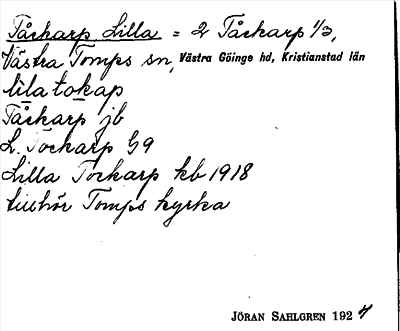 Tåckarp, Lilla = 2 Tåckarp 1/3,
Västra Torups sn, Västra Göinge hd, Kristianstad län
lilatokap
Tåckarp jb
L. Tockarp G9
Lilla Tockarp kb 1918
tillhör Torups kyrka
JÖRAN SAHLGREN 1927